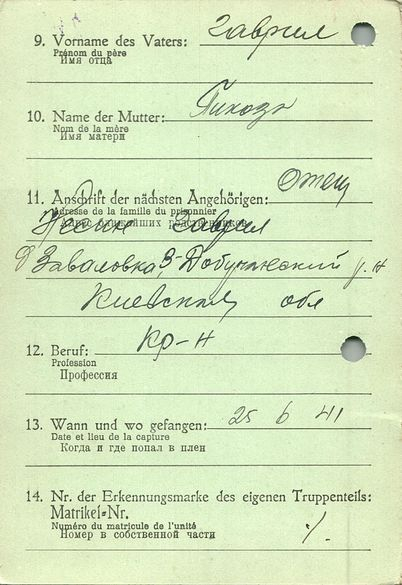 9. Vorname des Vaters: Гаврил
Prénom du père
Имя отца
10. Name der Mutter:
Nom de la mère
Имя матери
11. Anschrift der nächsten Angehörigen: Отец
Adresse de la famille du prisonnier
Адрес ближайших родственников
Гаврил
д Заваловка, р-н
Киевская обл
12. Beruf: Кр-н
Profession
Профессия
13. Wann und wo gefangen: 25 6 41
Date et lieu de la capture
Когда и где попал в плен
14. Nr. der Erkennungsmarke des eigenen Truppenteils:
Matrikel-Nr.
Numéro du matricule de l'unité
Номер в собственной части